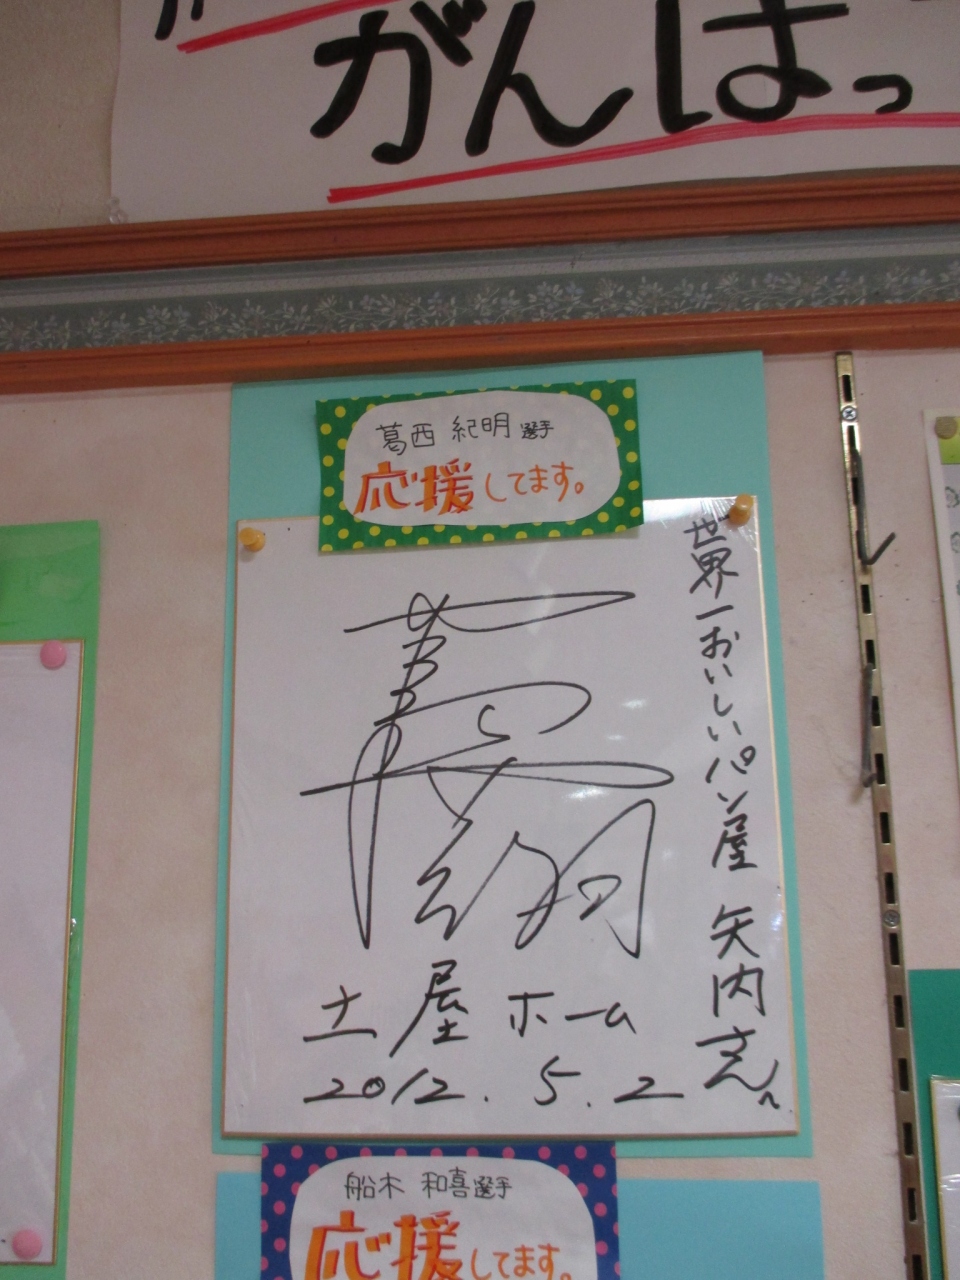 がんばっ
葛西 紀明選手
応援してます。
世界一おいしいパン屋 矢内さんへ
葛西紀明
土屋ホーム
2012.5.2
船木 和喜選手
応援してます。